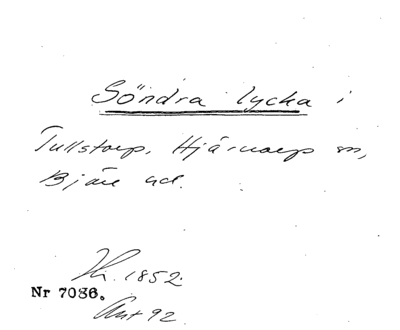 Söndra lycka i
Tullstorp, Hjärnarp sn,
Bjäre hd.
Hs. 1852.
Nr 7086.
Ant 92